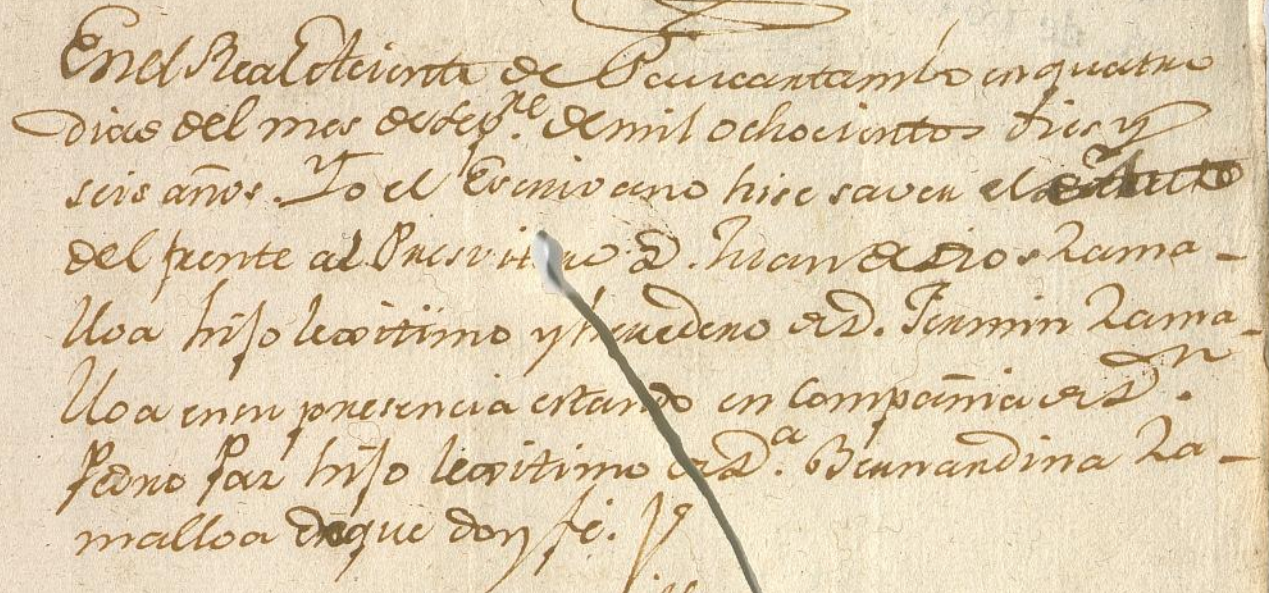 En el Real Aciento de Paucartambo en quatro
dias del mes de Sepre. de mil ochocientos dies y
seis años. Yo el Escrivano hise saver el
del frente al Presvitero D. Juan de Dios Zama-
lloa hijo lexitimo y heredero de D. Fermin Zama-
lloa en su presencia estando en Compañia de Dn.
Pedro Paz hijo lexitimo de Da. Bernardina Za-
malloa de que doy fé.